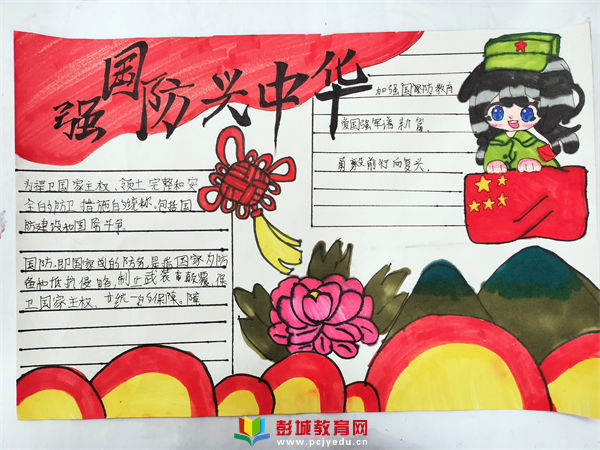 强国防兴中华
为捍卫国家主权、领土完整和安
全的防卫措施的统称。包括国
防建设和国居斗争
国防，即国家的防务，是指国家为防
备和抵抗侵略，制止武装颠覆，保
卫国家主权、
加强国家防教育
爱国强军谱新篇
勇毅前行向复兴.
彭城教育网
www.pcjyedu.cn